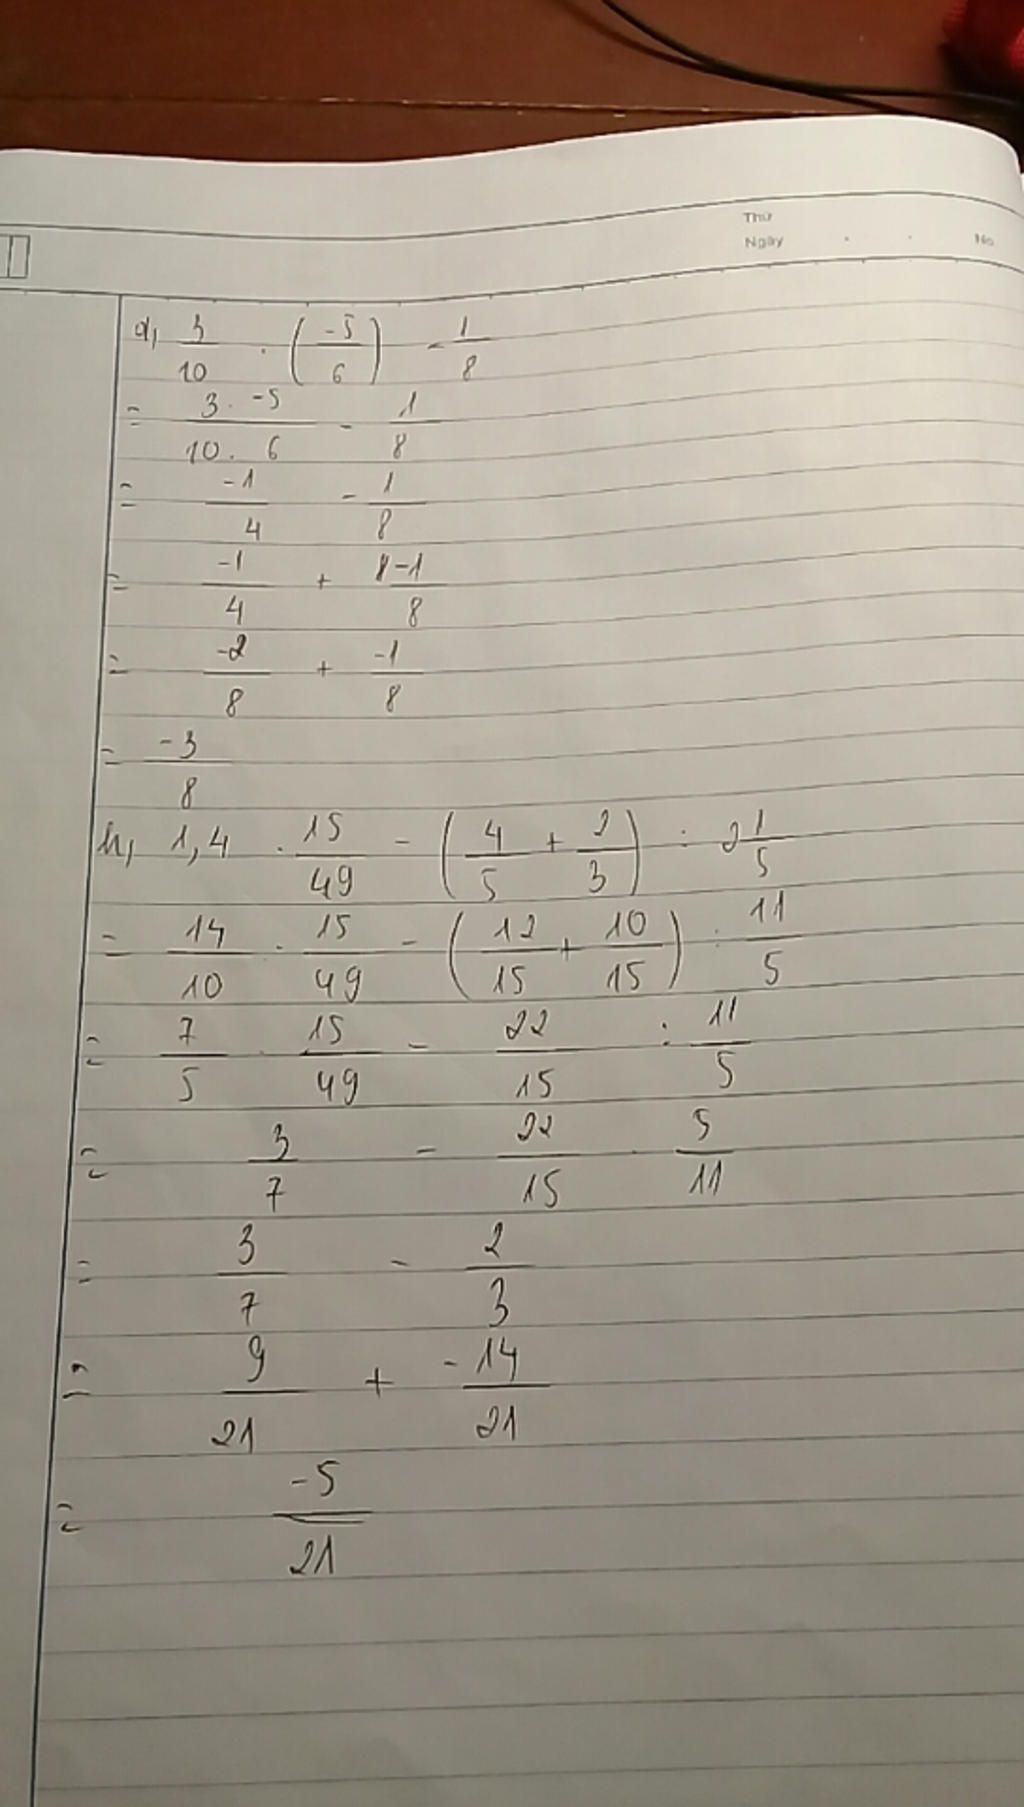 Thứ
Ngày . . No
d, 3/10 . (-5/6) - 1/8
= 3 . -5 / 10 . 6 - 1/8
= -1/4 - 1/8
= -1/4 + -1/8
= -2/8 + -1/8
= -3/8
h, 1,4 . 15/49 - (4/5 + 2/3) : 2 1/5
= 14/10 . 15/49 - (12/15 + 10/15) : 11/5
= 7/5 . 15/49 - 22/15 : 11/5
= 3/7 - 22/15 . 5/11
= 3/7 - 2/3
= 9/21 + -14/21
= -5/21